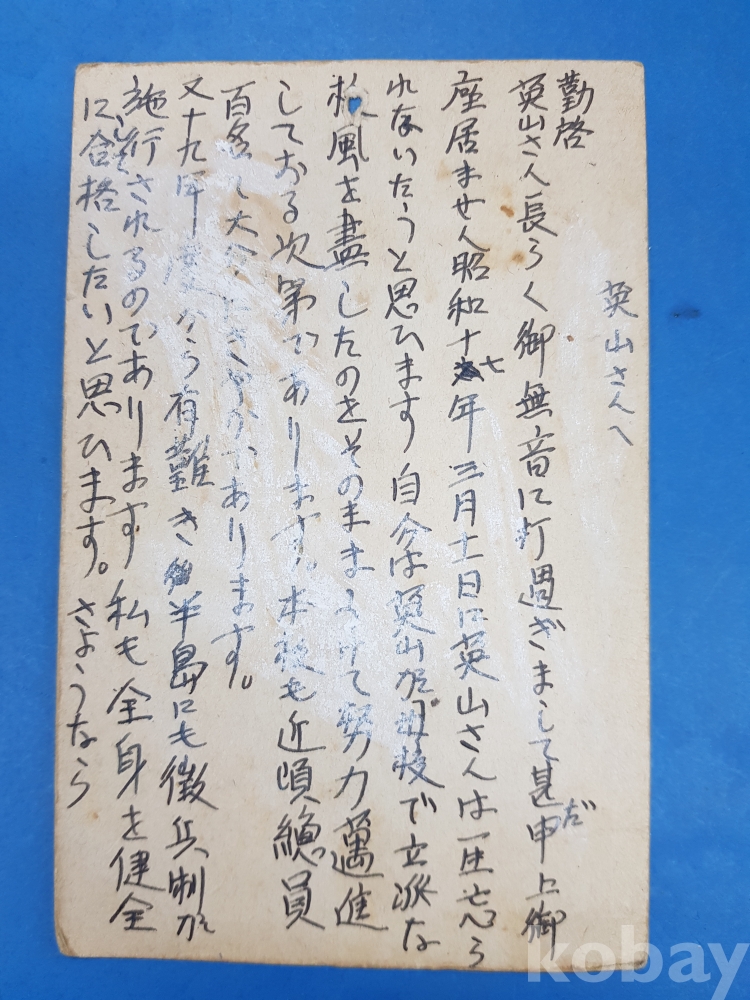 英山さんへ
勤啓
英山さん長らく御無音に打過ぎまして甚だ申上御
座居ません昭和十七年三月十一日に英山さんは一生忘ら
れないだらうと思ひます自分は英山が母校で立派な
校風を盡したのをそのまま うけて努力邁進
しておる次第であります。本校も近頃總員
百名 大分 にぎやかであります。
又十九年度から有難き 半島にも徴兵制が
施行されるのであります私も全身を健全
にして合格したいと思ひます。さようなら
kobay